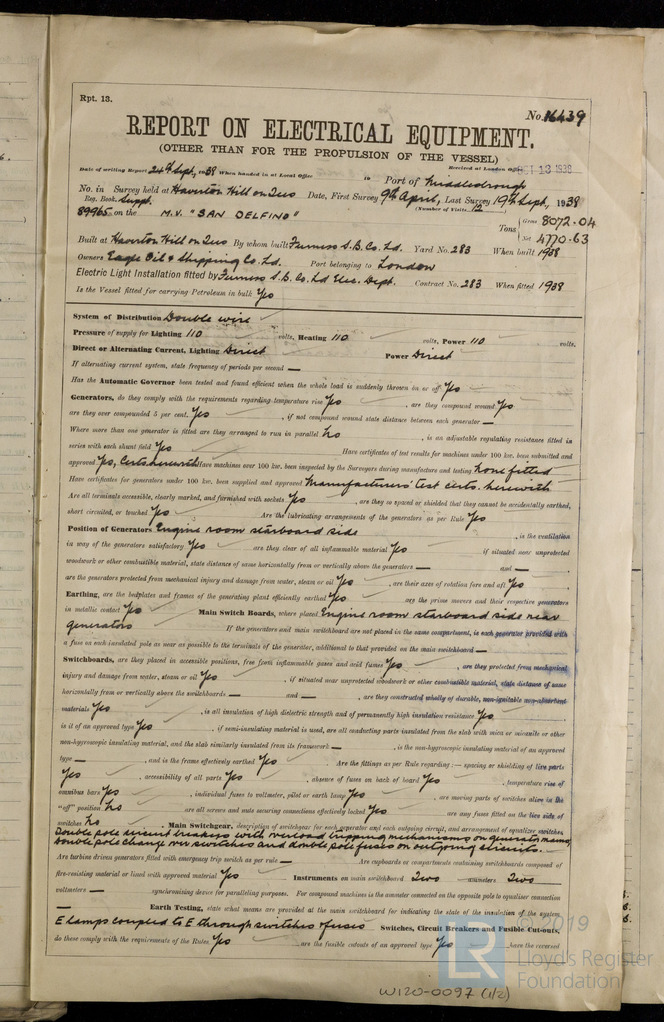 Rpt. 13.
No. 16439
REPORT ON ELECTRICAL EQUIPMENT.
(OTHER THAN FOR THE PROPULSION OF THE VESSEL)
Received at London Office OCT 13 1938
Date of writing Report 24th Sept, 1938 When handed in at Local Office 19 Port of Middlesbrough
No. in Survey held at Haverton Hill on Tees Date, First Survey 9th April, Last Survey 19th Sept, 1938
Reg. Book. Suppt. (Number of Visits 12)
89965 on the M.V. "SAN DELFINO" Tons Gross 8072.04
Net 4770.63
Built at Haverton Hill on Tees By whom built Furness S.B. Co. Ltd. Yard No. 283 When built 1938
Owners Eagle Oil & Shipping Co. Ltd. Port belonging to London
Electric Light Installation fitted by Furness S.B. Co. Ltd Elec. Dept. Contract No. 283 When fitted 1938
Is the Vessel fitted for carrying Petroleum in bulk Yes
System of Distribution Double wire
Pressure of supply for Lighting 110 volts, Heating 110 volts, Power 110 volts.
Direct or Alternating Current, Lighting Direct Power Direct
If alternating current system, state frequency of periods per second —
Has the Automatic Governor been tested and found efficient when the whole load is suddenly thrown on or off Yes
Generators, do they comply with the requirements regarding temperature rise Yes, are they compound wound Yes
are they over compounded 5 per cent. Yes, if not compound wound state distance between each generator —
Where more than one generator is fitted are they arranged to run in parallel No, is an adjustable regulating resistance fitted in
series with each shunt field Yes Have certificates of test results for machines under 100 kw. been submitted and
approved Yes, Certs herewith Have machines over 100 kw. been inspected by the Surveyors during manufacture and testing None fitted
Have certificates for generators under 100 kw. been supplied and approved Manufacturers' test certs. herewith
Are all terminals accessible, clearly marked, and furnished with sockets Yes, are they so spaced or shielded that they cannot be accidentally earthed,
short circuited, or touched Yes Are the lubricating arrangements of the generators as per Rule Yes
Position of Generators Engine room starboard side, is the ventilation
in way of the generators satisfactory Yes are they clear of all inflammable material Yes if situated near unprotected
woodwork or other combustible material, state distance of same horizontally from or vertically above the generators — and —
are the generators protected from mechanical injury and damage from water, steam or oil Yes, are their axes of rotation fore and aft Yes
Earthing, are the bedplates and frames of the generating plant efficiently earthed Yes are the prime movers and their respective generators
in metallic contact Yes Main Switch Boards, where placed Engine room starboard side near
generators If the generators and main switchboard are not placed in the same compartment, is each generator provided with
a fuse on each insulated pole as near as possible to the terminals of the generator, additional to that provided on the main switchboard —
Switchboards, are they placed in accessible positions, free from inflammable gases and acid fumes Yes, are they protected from mechanical
injury and damage from water, steam or oil Yes, if situated near unprotected woodwork or other combustible material, state distance of same
horizontally from or vertically above the switchboards — and —, are they constructed wholly of durable, non-ignitable non-absorbent
materials Yes, is all insulation of high dielectric strength and of permanently high insulation resistance Yes
is it of an approved type Yes, if semi-insulating material is used, are all conducting parts insulated from the slab with mica or micanite or other
non-hygroscopic insulating material, and the slab similarly insulated from its framework —, is the non-hygroscopic insulating material of an approved
type —, and is the frame effectively earthed Yes Are the fittings as per Rule regarding:— spacing or shielding of live parts
Yes, accessibility of all parts Yes, absence of fuses on back of board Yes, temperature rise of
omnibus bars Yes, individual fuses to voltmeter, pilot or earth lamp Yes, are moving parts of switches alive in the
"off" position No are all screws and nuts securing connections effectively locked Yes are any fuses fitted on the live side of
switches No Main Switchgear, description of switchgear for each generator and each outgoing circuit, and arrangement of equaliser switches
Double pole circuit breakers with overload tripping mechanisms on generator mains,
Double pole change over switches and double pole fuses on outgoing circuits.
Are turbine driven generators fitted with emergency trip switch as per rule — Are cupboards or compartments containing switchboards composed of
fire-resisting material or lined with approved material Yes Instruments on main switchboard Two ammeters Two
voltmeters — synchronising device for paralleling purposes. For compound machines is the ammeter connected on the opposite pole to equaliser connection
— Earth Testing, state what means are provided at the main switchboard for indicating the state of the insulation of the system
E lamps coupled to E through switches & fuses Switches, Circuit Breakers and Fusible Cut-outs,
do these comply with the requirements of the Rules Yes, are the fusible cutouts of an approved type Yes, have the reversed
© 2019
LR
Lloyd's Register
Foundation
W120-0097 (1/2)